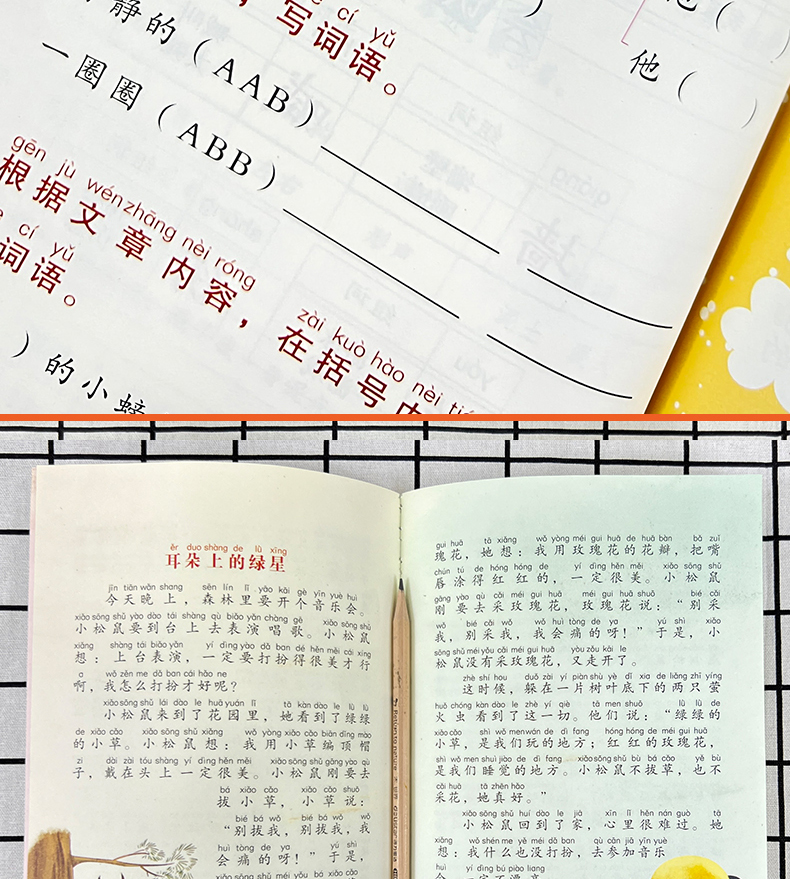 cí yǔ
写词语。
静的（AAB）
一圈圈（ABB）
他（ ）
gēn jù wén zhāng nèi róng
根据文章内容，
zài kuò hào nèi
在括号内
cí yǔ
词语。
）的小
ěr duo shàng de lǜ xīng
耳朵上的绿星
jīn tiān wǎn shang sēn lín lǐ yào kāi gè yīn yuè huì
今天晚上，森林里要开个音乐会。
xiǎo sōng shǔ yào dào tái shàng qù biǎo yǎn chàng gē xiǎo sōng shǔ
小松鼠要到台上去表演唱歌。小松鼠
xiǎng shàng tái biǎo yǎn yí dìng yào dǎ ban dé hěn měi cái xíng
想：上台表演，一定要打扮得很美才行
a wǒ zěn me dǎ ban cái hǎo ne
啊，我怎么打扮才好呢？
xiǎo sōng shǔ lái dào le huā yuán lǐ tā kàn dào le lǜ lǜ
小松鼠来到了花园里，她看到了绿绿
de xiǎo cǎo xiǎo sōng shǔ xiǎng wǒ yòng xiǎo cǎo biān dǐng mào
的小草。小松鼠想：我用小草编顶帽
zi dài zài tóu shàng yí dìng hěn měi xiǎo sōng shǔ gāng yào qù
子，戴在头上一定很美。小松鼠刚要去
bá xiǎo cǎo xiǎo cǎo shuō
拔小草，小草说：
bié bá wǒ bié bá wǒ wǒ
“别拔我，别拔我，我
huì tòng de ya yú shì
会痛的呀！”于是，
xiǎo sōng shǔ méi yǒu bá xiǎo cǎo
gui huā tā xiǎng wǒ yòng méi gui huā de huā bàn bǎ zuǐ
瑰花，她想：我用玫瑰花的花瓣，把嘴
chún tú de hóng hóng de yí dìng hěn měi xiǎo sōng shǔ
唇涂得红红的，一定很美。小松鼠
gāng yào qù cǎi méi gui huā méi gui huā shuō bié cǎi
刚要去采玫瑰花，玫瑰花说：“别采
wǒ bié cǎi wǒ wǒ huì tòng de ya yú shì xiǎo
我，别采我，我会痛的呀！”于是，小
sōng shǔ méi yǒu cǎi méi gui huā yòu zǒu kāi le
松鼠没有采玫瑰花，又走开了。
zhè shí hou duǒ zài yí piàn shù yè dǐ xia de liǎng zhī yíng
这时候，躲在一片树叶底下的两只萤
huǒ chóng kàn dào le zhè yí qiè tā men shuō lǜ lǜ de
火虫看到了这一切。他们说：“绿绿的
xiǎo cǎo shì wǒ men wán de dì fang hóng hóng de méi gui huā
小草，是我们玩的地方；红红的玫瑰花，
shì wǒ men shuì jiào de dì fang xiǎo sōng shǔ bù bá cǎo yě bù
是我们睡觉的地方。小松鼠不拔草，也不
cǎi huā tā zhēn hǎo
采花，她真好。”
xiǎo sōng shǔ huí dào le jiā xīn lǐ hěn nán guò tā
小松鼠回到了家，心里很难过。她
xiǎng wǒ shén me yě méi dǎ ban qù cān jiā yīn yuè
想：我什么也没打扮，去参加音乐
huì yí dìng bú piào liang
会，一定不漂亮